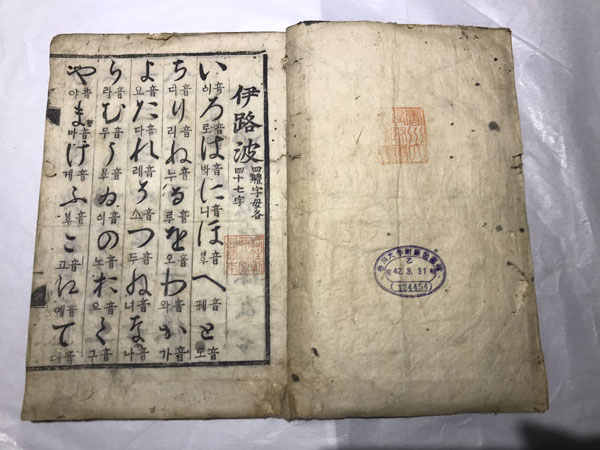 伊路波 四體字母各四十七字
い 이音 ろ 로音 は 바音 に 니音 ほ へ 폐音 と 도音
ち 디音 り 리音 ぬ 누音 る 루音 を 오音 わ 와音 か 가音
よ 요音 た 다音 れ そ 소音 つ 두音 ね 녀音 な 나音
ら 라音 む 무音 う 우音 ゐ 이音 の 노音 お 오音 く 구音
や 야音 ま 마音 け 계音 ふ 부音 こ 고音 え 예音 て
香川大学附属図書館
乙
42.3.31
124454